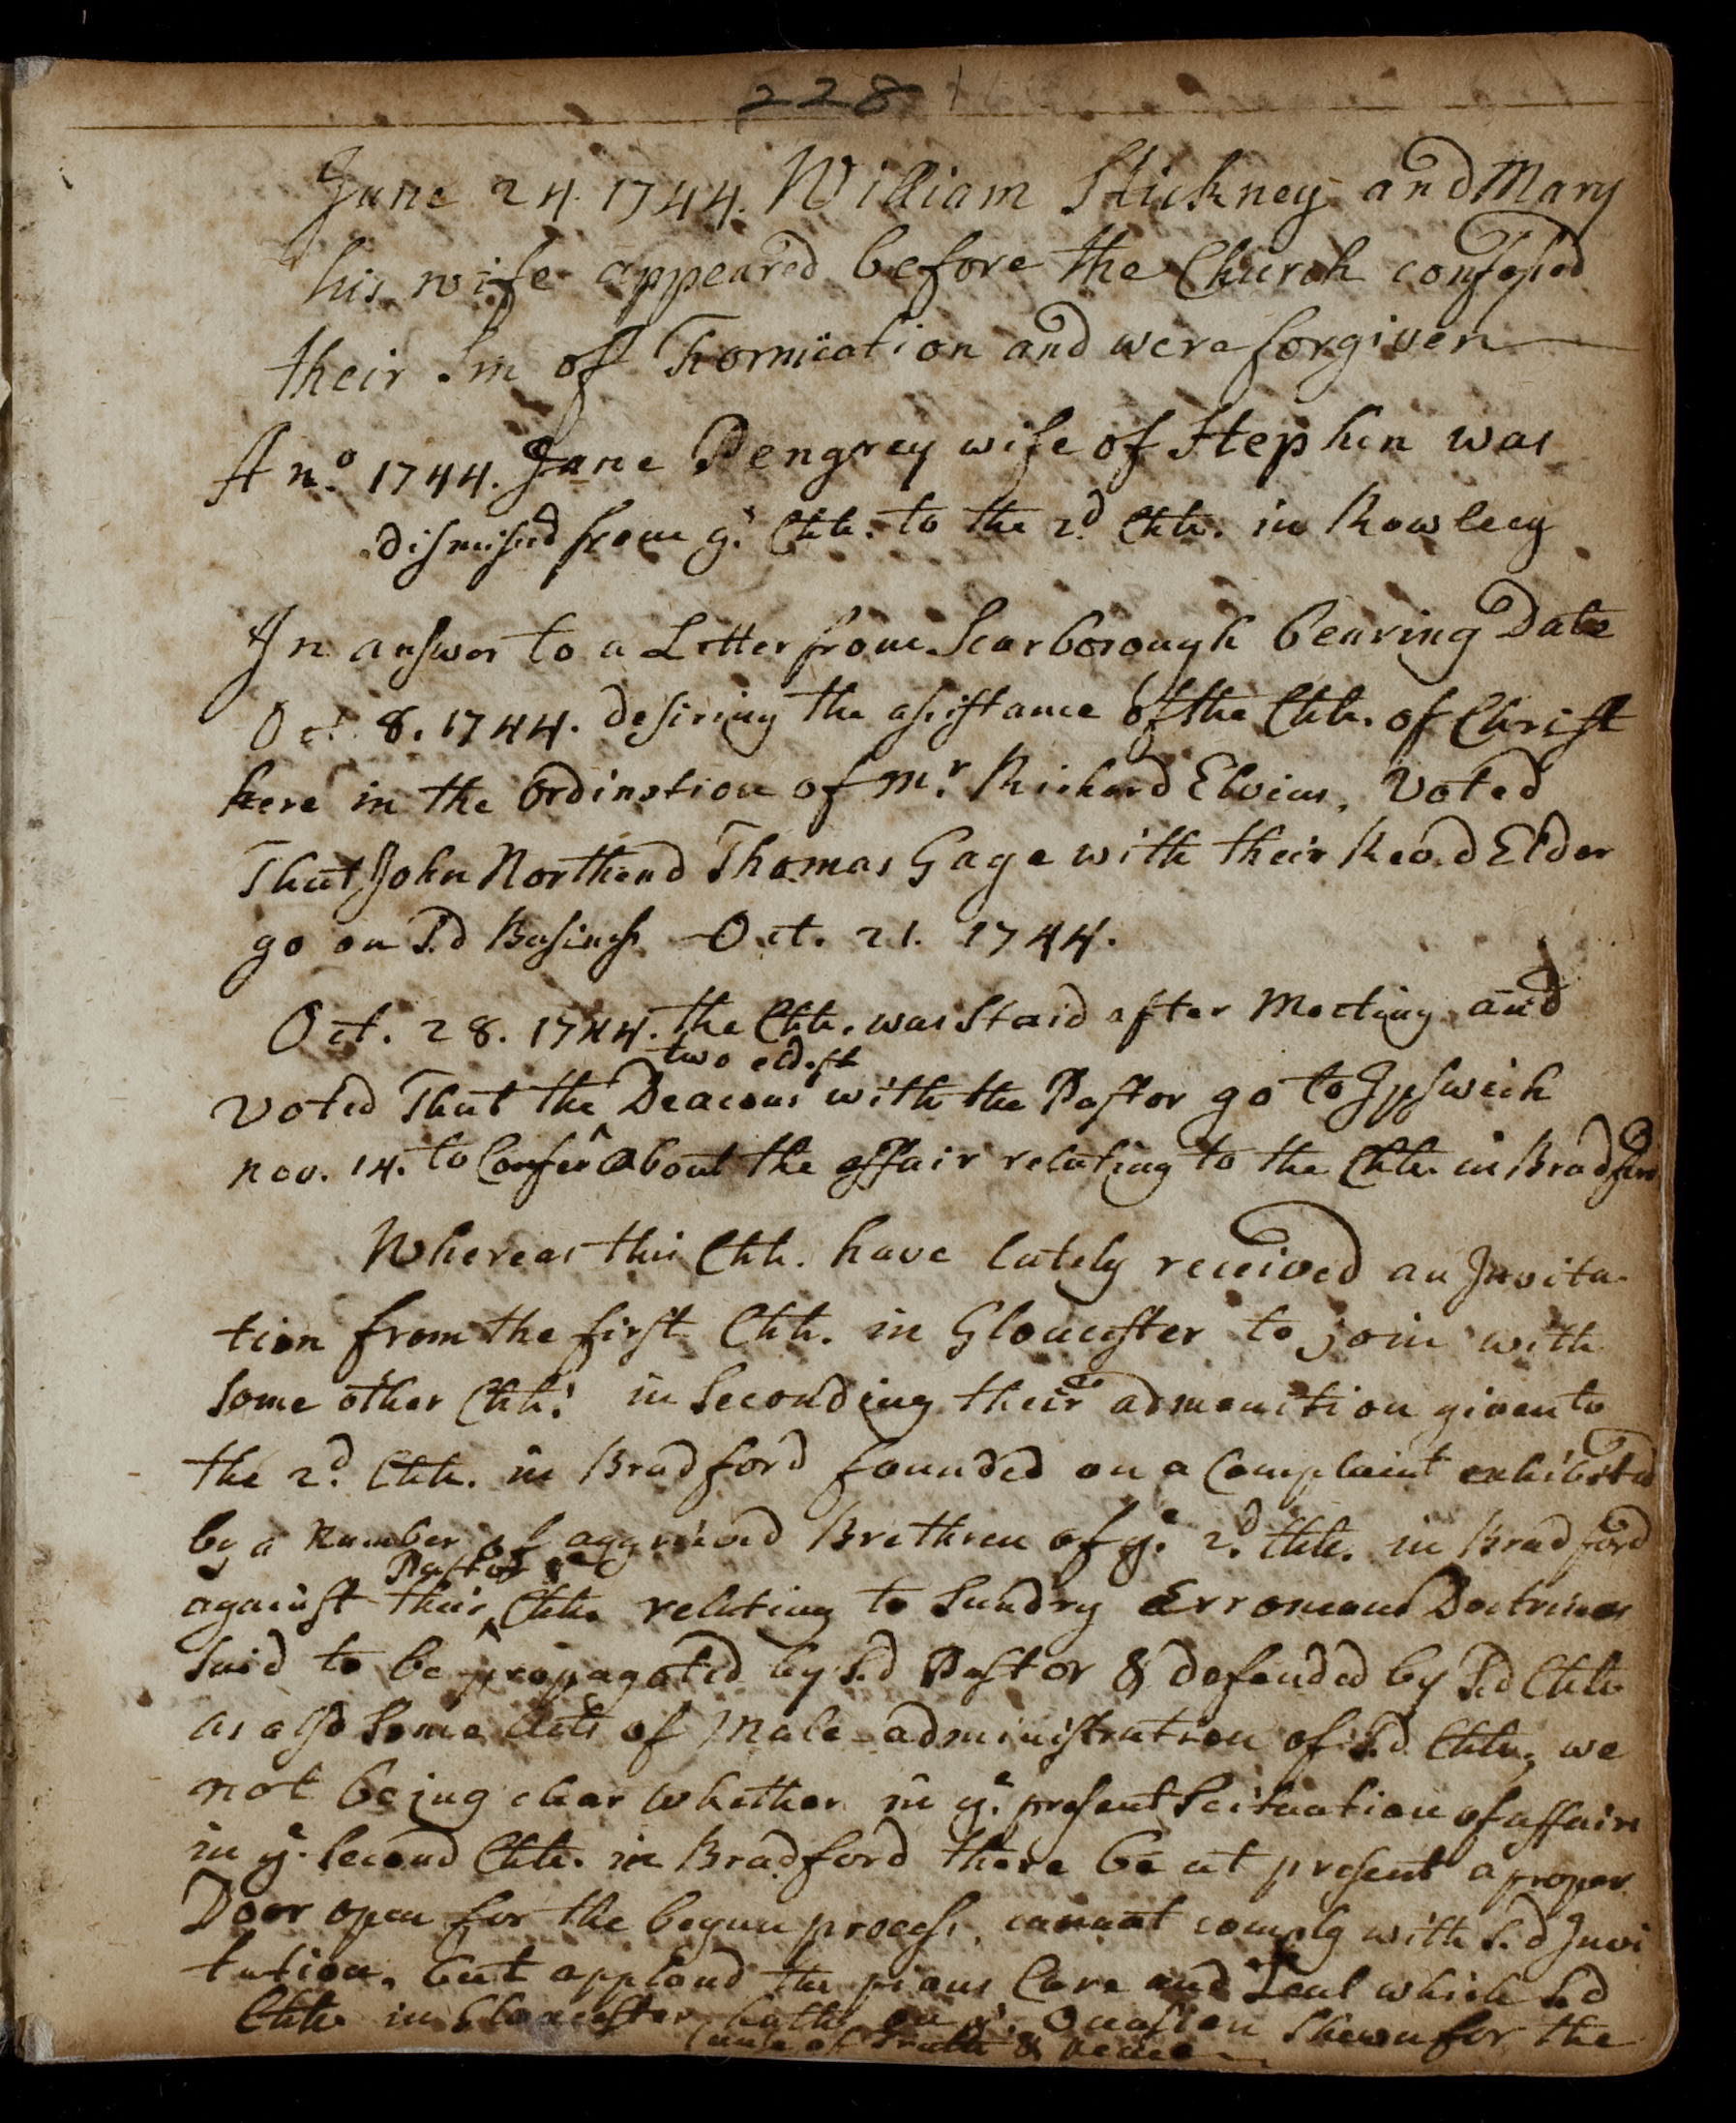 228
June 24. 1744. William Stickney and Mary
his wife appeared before the Church confessed
their Sin of Fornication and were forgiven
Ano. 1744. Jane Pengrey wife of Stephen was
dismissed from ys. Chh. to the 2d. Chh. in Rowley
In answer to a Letter from Scarborough bearing Date
Oct. 8. 1744. desiring the assistance of the Chh. of Christ
here in the Ordination of Mr. Richard Elvins, Voted
That John Northend Thomas Gage with their Revd Elder
go on Sd Business Oct. 21. 1744.
Oct. 28. 1744. the Chh. was Staid after Meeting and
two eldest
voted That the Deacons with the Pastor go to Ipswich
nov. 14. to Confer about the affair relating to the Chh. in Bradford
Whereas this Chh. have lately received an Invita-
tion from the first Chh. in Gloucester to join with
some other Chhs. in Seconding their admonition given to
the 2d. Chh. in Bradford founded on a Complaint exhibited
by a Number of aggrieved Brethren of ye. 2d. Chh. in Bradford
Pastor &
against their Chh. relating to Sundry Erroneous Doctrines
said to be propagated by Sd Pastor & defended by Sd Chh
as also Some Acts of Male-administration of Sd Chh, we
not being clear whether in ye. present Scituation of affairs
in ye. Second Chh. in Bradford there be at present a proper
Door open for the begun process, cannot comply with Sd Invi
tation, but applaud the pious Care and Zeal which Sd
Chh in Gloucester hath on ys. Occasion Shewn for the
Cause of Truth & peace